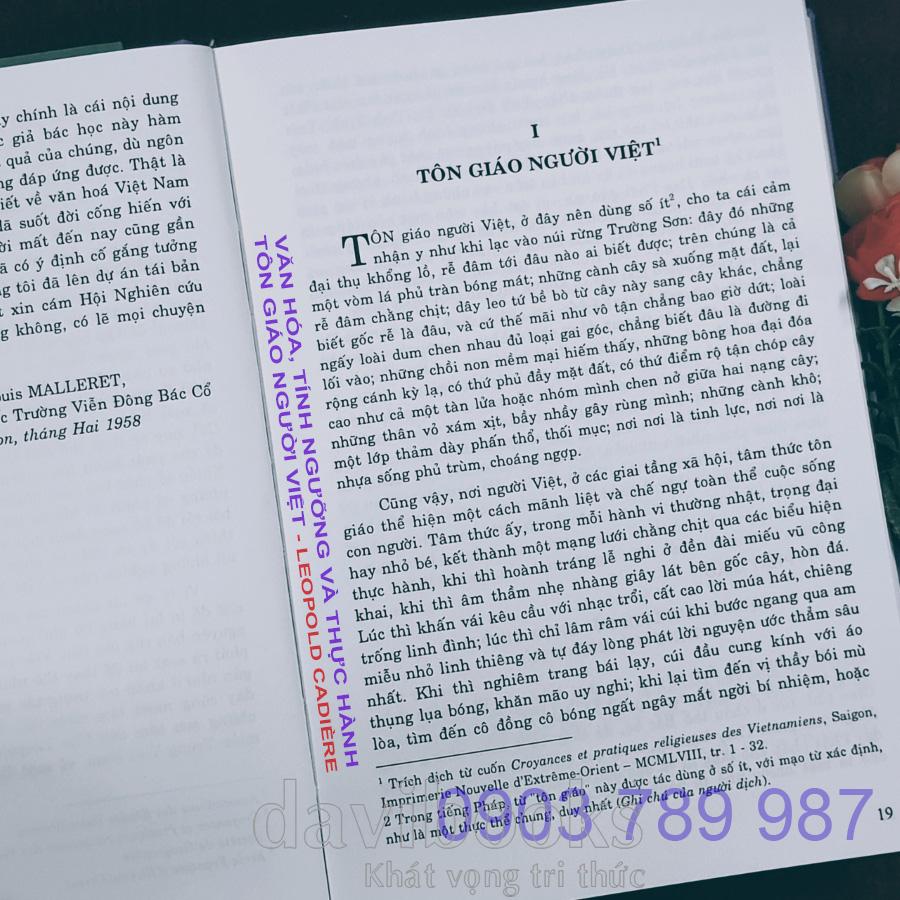 y chính là cái nội dung
giả bác học này hàm
quả của chúng, dù ngôn
ng đáp ứng được. Thật là
iết về văn hoá Việt Nam
lã suốt đời cống hiến với
ời mất đến nay cũng gần
ã có ý định cố gắng tưởng
g tôi đã lên dự án tái bản
t xin cám Hội Nghiên cứu
g không, có lẽ mọi chuyện
uis MALLERET,
c Trường Viễn Đông Bác Cổ
on, tháng Hai 1958
I
TÔN GIÁO NGƯỜI VIỆT¹
TÔN giáo người Việt, ở đây nên dùng số ít², cho ta cái cảm
nhận y như khi lạc vào núi rừng Trường Sơn: đây đó những
đại thụ khổng lồ, rễ đâm tới đâu nào ai biết được; trên chúng là cả
một vòm lá phủ tràn bóng mát; những cành cây sà xuống mặt đất, lại
rễ đâm chằng chịt; dây leo tứ bề bò từ cây này sang cây khác, chẳng
biết gốc rễ là đâu, và cứ thế mãi như vô tận chẳng bao giờ dứt; loài
ngấy loài dum chen nhau đủ loại gai góc, chẳng biết đâu là đường đi
lối vào; những chồi non mềm mại hiếm thấy, những bông hoa đại đóa
rộng cánh kỳ lạ, có thứ phủ đầy mặt đất, có thứ điểm rộ tận chóp cây
cao như cả một tàn lửa hoặc nhóm mình chen nở giữa hai nạng cây;
những thân vỏ xám xịt, bầy nhầy gây rùng mình; những cành khô;
một lớp thảm dày phấn thổ, thối mục; nơi nơi là tinh lực, nơi nơi là
nhựa sống phủ trùm, choáng ngợp.
Cũng vậy, nơi người Việt, ở các giai tầng xã hội, tâm thức tôn
giáo thể hiện một cách mãnh liệt và chế ngự toàn thể cuộc sống
con người. Tâm thức ấy, trong mỗi hành vi thường nhật, trọng đại
hay nhỏ bé, kết thành một mạng lưới chằng chịt qua các biểu hiện
thực hành, khi thì hoành tráng lễ nghi ở đền đài miếu vũ công
khai, khi thì âm thầm nhẹ nhàng giây lát bên gốc cây, hòn đá.
Lúc thì khấn vái kêu cầu với nhạc trổi, cất cao lời múa hát, chiêng
trống linh đình; lúc thì chỉ lâm râm vái cúi khi bước ngang qua am
miễu nhỏ linh thiêng và tự đáy lòng phát lời nguyện ước thẳm sâu
nhất. Khi thì nghiêm trang bái lạy, cúi đầu cung kính với áo
thụng lụa bóng, khăn mão uy nghi; khi lại tìm đến vị thầy bói mù
lòa, tìm đến cô đồng cô bóng ngất ngây mắt ngời bí nhiệm, hoặc
¹ Trích dịch từ cuốn Croyances et pratiques religieuses des Vietnamiens, Saigon,
Imprimerie Nouvelle d'Extrême-Orient – MCMLVIII, tr. 1 - 32.
2 Trong tiếng Pháp, từ "tôn giáo" này được tác dùng ở số ít, với mạo từ xác định,
như là một thực thể chung, duy nhất (Ghi chú của người dịch).
19
VĂN HÓA, TÍNH NGƯỠNG VÀ THỰC HÀNH
TÔN GIÁO NGƯỜI VIỆT - LEOPOLD CADIÈRE
davibooks
0903 789 987
Khát vọng tri thức